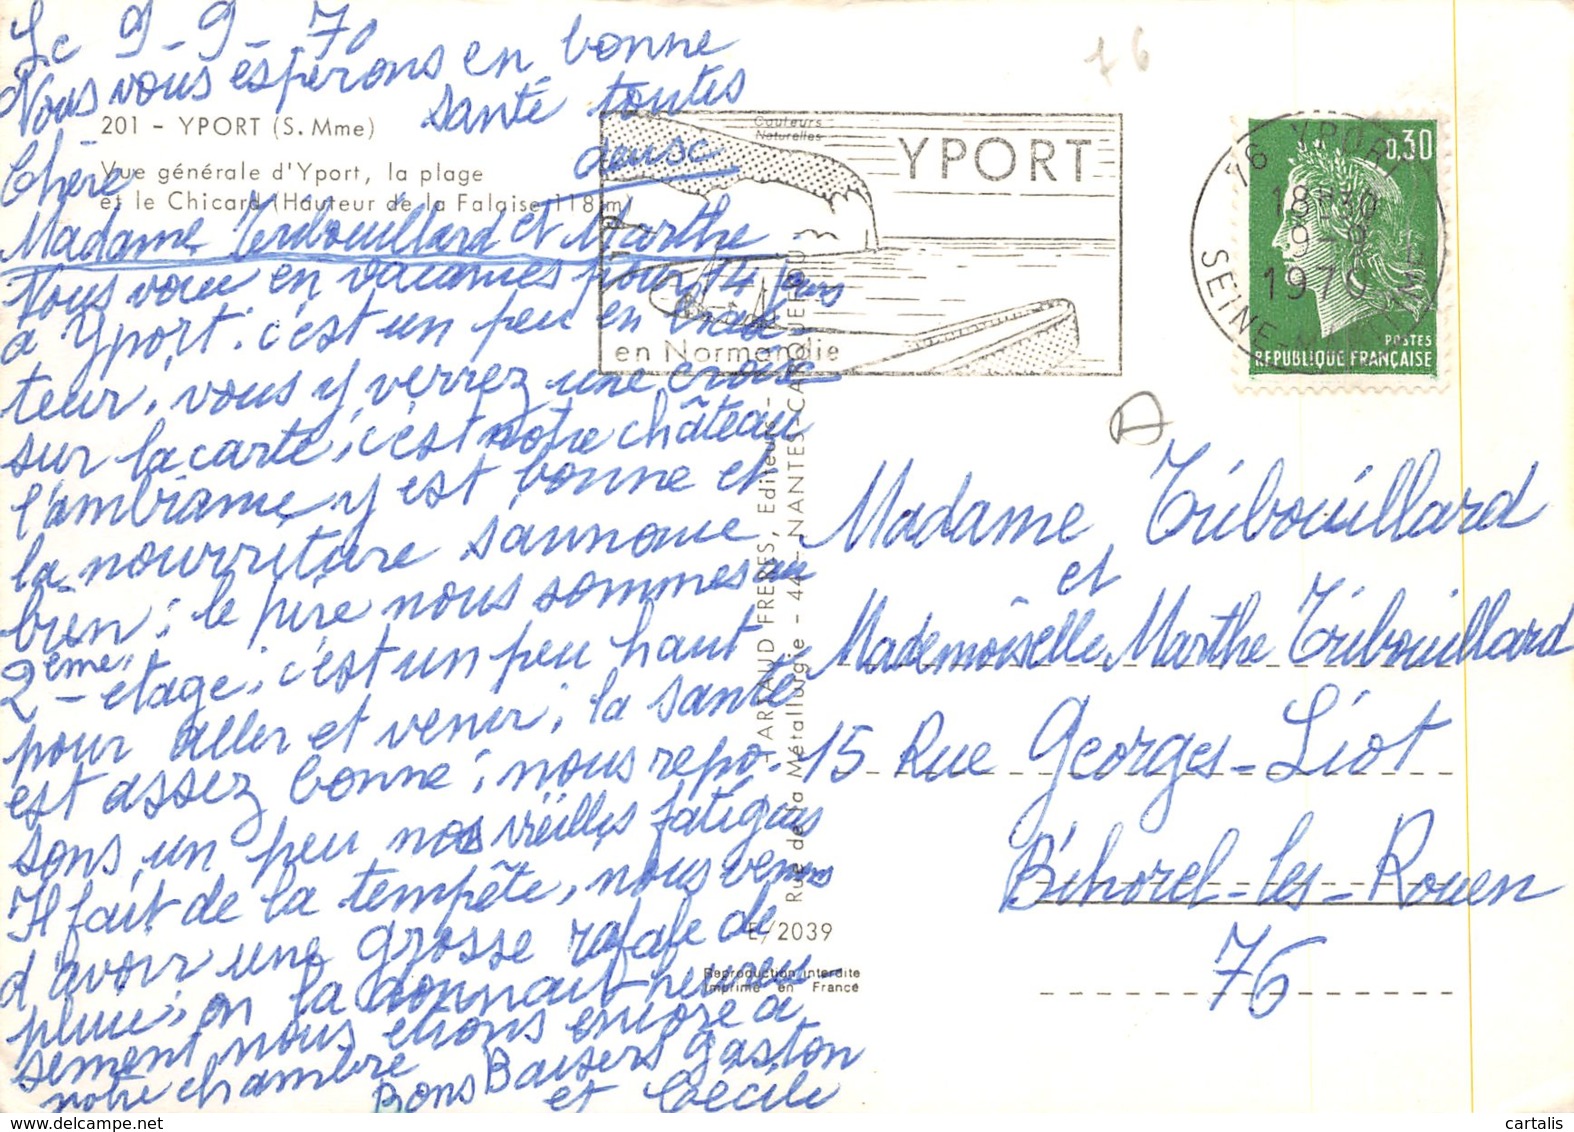 Le 9-9-70
Nous vous espérons en bonne
santé toutes
deuse
201 - YPORT (S. Mme)
Vue générale d'Yport, la plage
et le Chicard (Hauteur de la Falaise 118 m)
Chère
Madame Tribouillard et Marthe
Nous voici en vacances pour 14 jours
a Yport. c'est un peu en
teur, vous y verrez une croix
sur la carte, c'est notre château
l'ambiance y est bonne et
la nourriture
bien; le pire nous sommes au
2ème étage, c'est un peu haut
pour aller et venir; la santé
est assez bonne; nous repo-
sons un peu nos vieilles fatigues
Il fait de la tempête, nous venons
d'avoir une grosse rafale de
pluie, on la donnait heureu
sement nous étions encore a
notre chambre
Bons Baisers Gaston
et Cécile
76
Couleurs
Naturelles
YPORT
en Normandie
76 YPORT
18H30
9-9
1970
SEINE-MARITIME
0,30
POSTES
REPUBLIQUE FRANÇAISE
D
Madame Tribouillard
et
Mademoiselle Marthe Tribouillard
15 Rue Georges-Liot
Bihorel-les-Rouen
76
ARTAUD FRERES, Editeurs -
Rue de la Métallurgie - 44 - NANTES-CARQUEFOU
E/2039
Reproduction interdite
Imprimé en France
cartalis